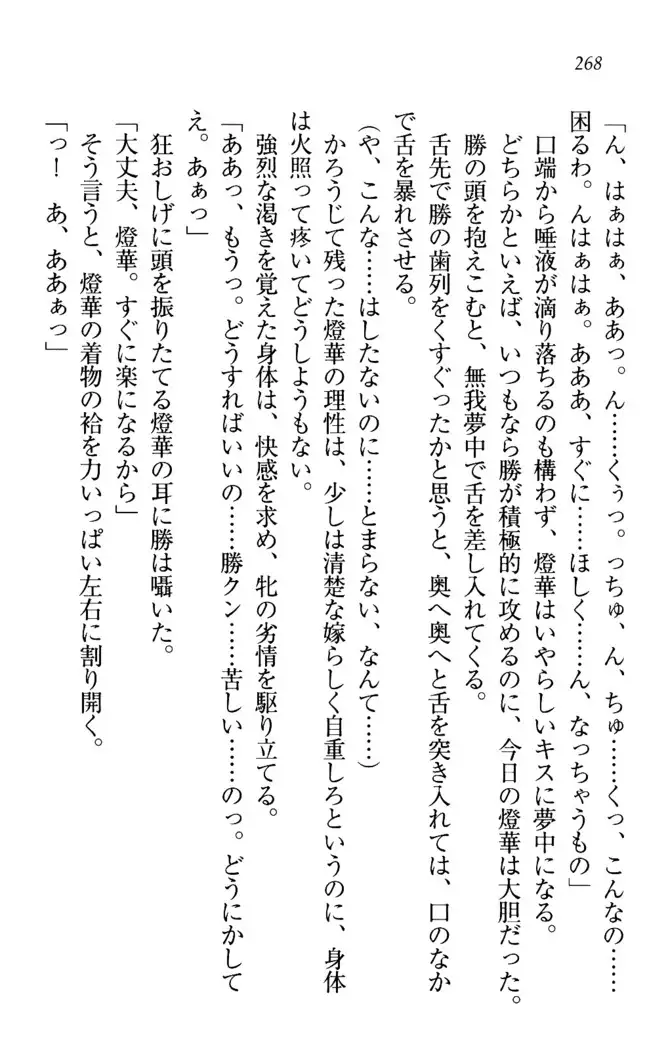 268
「ん、はぁはぁ、ああっ。ん……くぅっ。っちゅ、ん、ちゅ……くっ、こんなの……
困るわ。んはぁはぁ。あああ、すぐに……ほしく……ん、なっちゃうもの」
口端から唾液が滴り落ちるのも構わず、燈華はいやらしいキスに夢中になる。
どちらかといえば、いつもなら勝が積極的に攻めるのに、今日の燈華は大胆だった。
勝の頭を抱えこむと、無我夢中で舌を差し入れてくる。
舌先で勝の歯列をくすぐったかと思うと、奥へ奥へと舌を突き入れては、口のなか
で舌を暴れさせる。
（や、こんな……はしたないのに……とまらない、なんて……）
かろうじて残った燈華の理性は、少しは清楚な嫁らしく自重しろというのに、身体
は火照って疼いてどうしようもない。
強烈な渇きを覚えた身体は、快感を求め、牝の劣情を駆り立てる。
「ああっ、もうっ。どうすればいいの……勝クン……苦しい……のっ。どうにかして
え。あぁっ」
狂おしげに頭を振りたてる燈華の耳に勝は囁いた。
「大丈夫、燈華。すぐに楽になるから」
そう言うと、燈華の着物の袷を力いっぱい左右に割り開く。
「っ！　あ、ああぁっ」